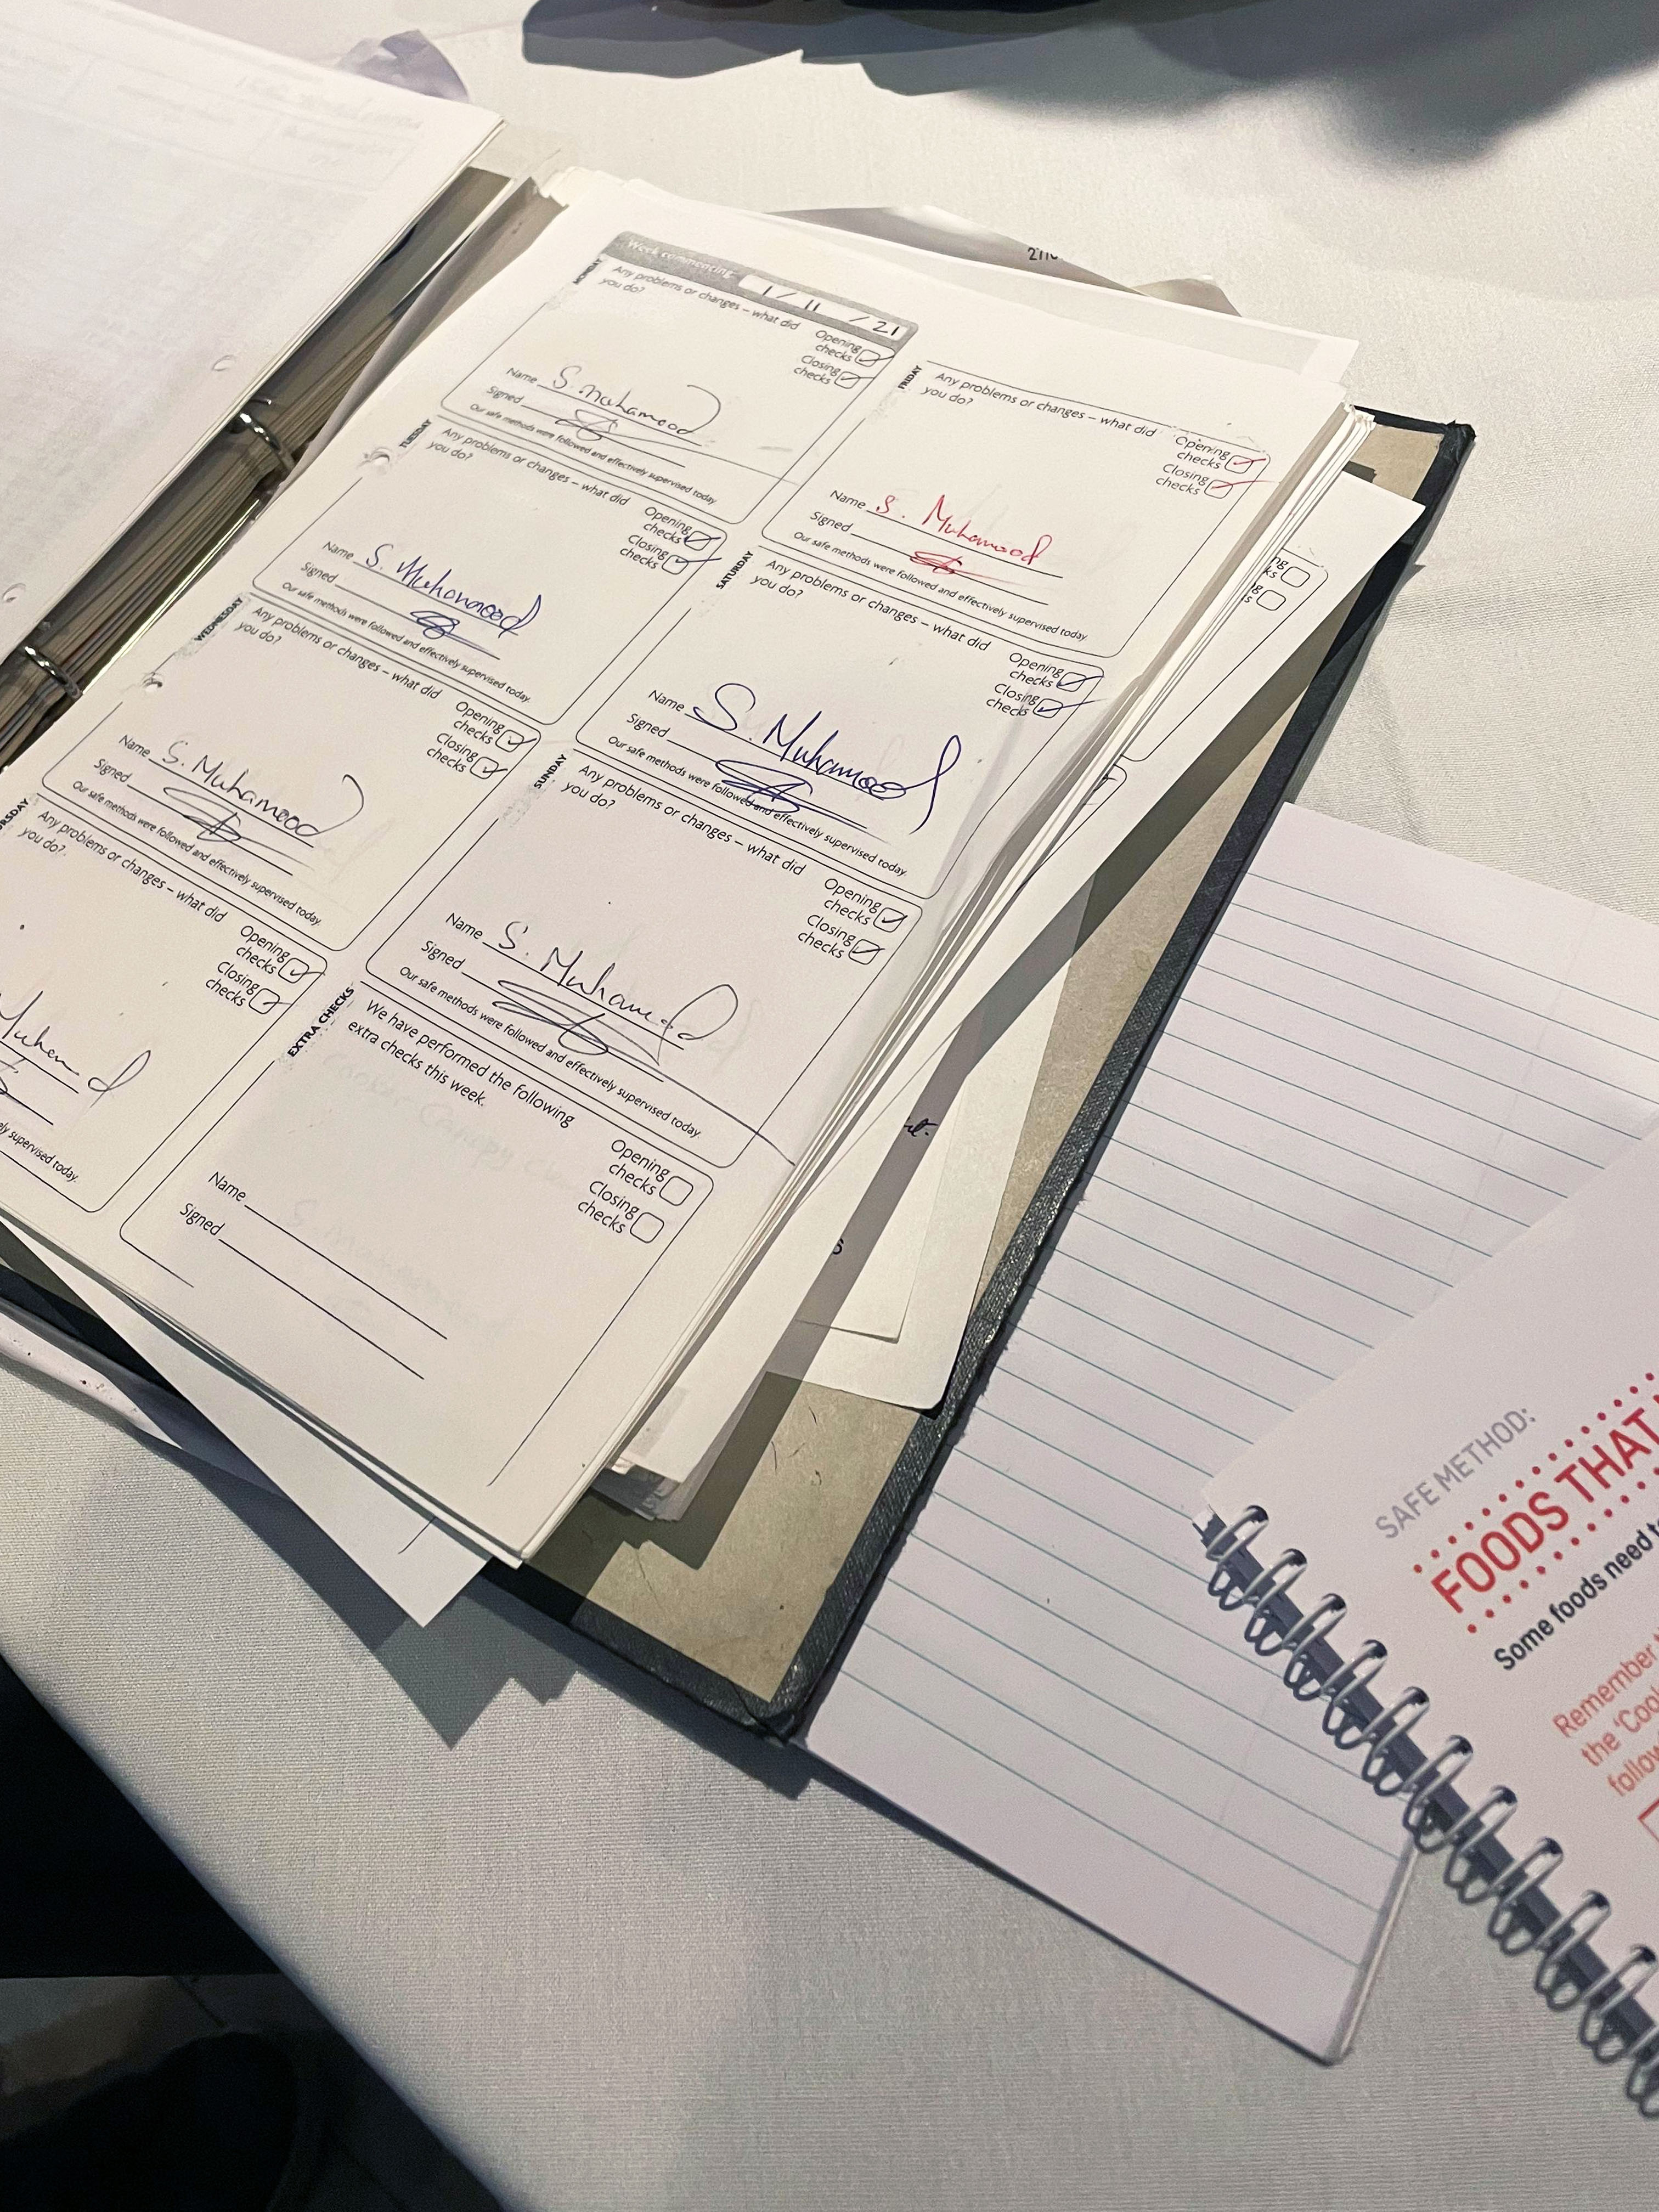 Week commencing 1 / 11 / 21
MONDAY
Any problems or changes – what did
you do?
Opening
checks
Closing
checks
Name S. Muhamood
Signed
Our safe methods were followed and effectively supervised today.
TUESDAY
Any problems or changes – what did
you do?
Opening
checks
Closing
checks
Name S. Muhamood
Signed
Our safe methods were followed and effectively supervised today.
WEDNESDAY
Any problems or changes – what did
you do?
Opening
checks
Closing
checks
Name S. Muhamood
Signed
Our safe methods were followed and effectively supervised today.
RSDAY
Any problems or changes – what did
you do?
Opening
checks
Closing
checks
ely supervised today.
FRIDAY
Any problems or changes – what did
you do?
Opening
checks
Closing
checks
Name S. Muhamood
Signed
Our safe methods were followed and effectively supervised today.
SATURDAY
Any problems or changes – what did
you do?
Opening
checks
Closing
checks
Name S. Muhamood
Signed
Our safe methods were followed and effectively supervised today.
SUNDAY
Any problems or changes – what did
you do?
Opening
checks
Closing
checks
Name S. Muhamood
Signed
Our safe methods were followed and effectively supervised today.
EXTRA CHECKS
We have performed the following
extra checks this week.
Opening
checks
Closing
checks
Name
Signed
SAFE METHOD:
FOODS THAT
Some foods need to
Remember
the 'Coo
follow